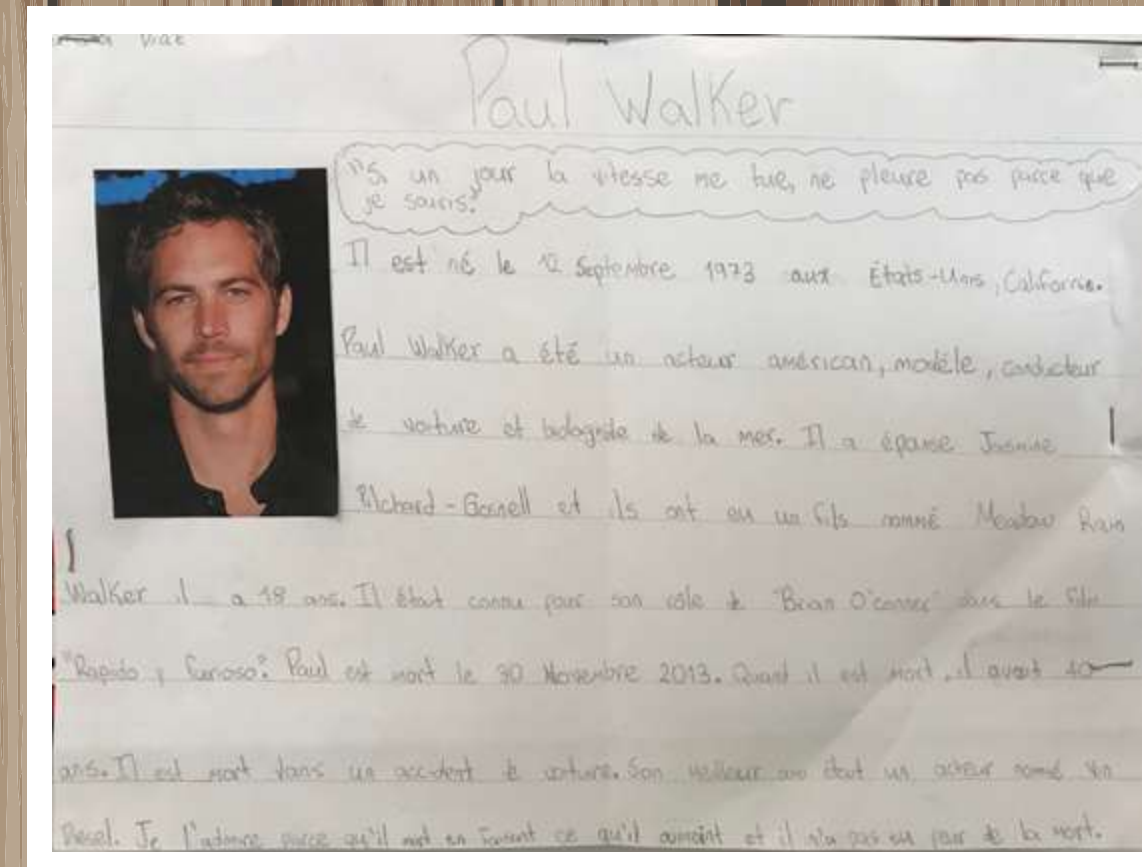 Paul Walker
"Si un jour la vitesse me tue, ne pleure pas parce que
je souris."
Il est né le 12 Septembre 1973 aux États-Unis, Californie.
Paul Walker a été un acteur américan, modèle, conducteur
de voiture et de la mer. Il a épouse Jasmine
Pilchard-Gosnell et ils ont eu un fils nommé Meadow Rain
Walker il a 18 ans. Il était connu pour son rôle de "Brian O'conner" dans le film
"Rapido y furioso". Paul est mort le 30 Novembre 2013. Quand il est mort, il avait 40
ans. Il est mort dans un accident de voiture. Son meilleur ami était un acteur nommé Vin
Diesel. Je l'admire parce qu'il mort en faisant ce qu'il et il n'a pas eu peur de la mort.